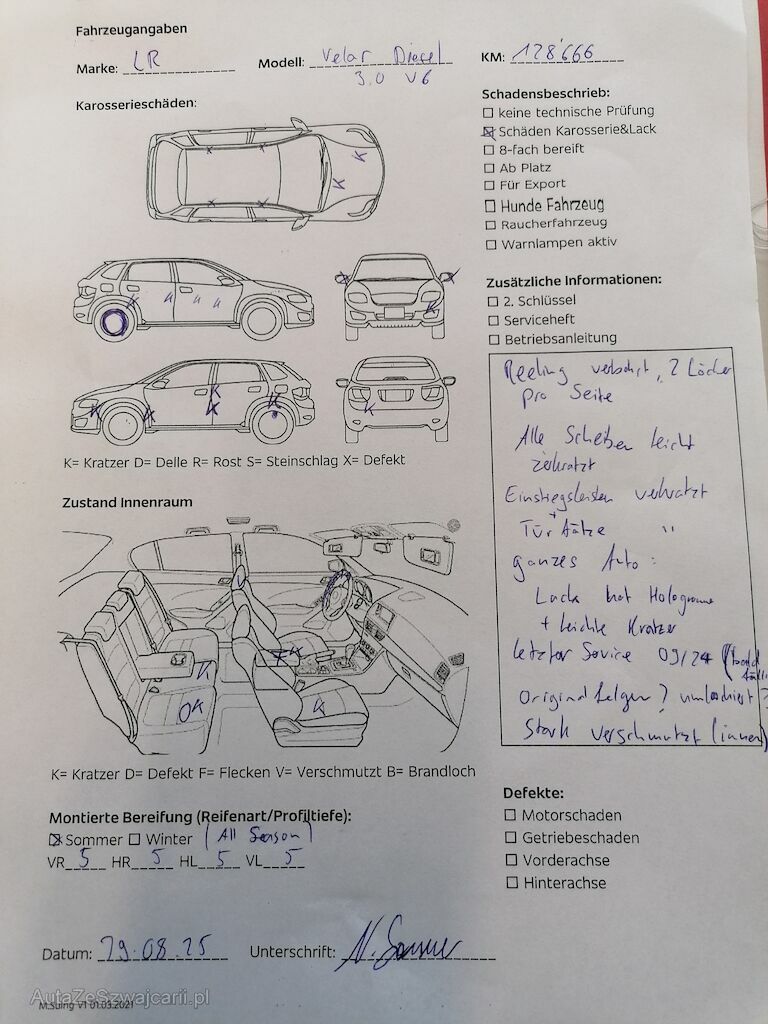 Fahrzeugangaben
Marke: LR
Modell: Velar Diesel
3.0 V6
KM: 128'666
Karosserieschäden:
Schadensbeschrieb:
keine technische Prüfung
Schäden Karosserie&Lack
8-fach bereift
Ab Platz
Für Export
Hunde Fahrzeug
Raucherfahrzeug
Warnlampen aktiv
Zusätzliche Informationen:
2. Schlüssel
Serviceheft
Betriebsanleitung
Reeling verbohrt, 2 Löcher
pro Seite
Alle Scheiben leicht
zerkratzt
Einstiegsleisten verkratzt
+
Tür "
ganzes Auto:
Lack hat Hologramme
+ leichte Kratzer
letzter Service 09/24 (bald
Original Felgen? umlackiert?
Stark verschmutzt (innen)
K= Kratzer D= Delle R= Rost S= Steinschlag X= Defekt
Zustand Innenraum
K= Kratzer D= Defekt F= Flecken V= Verschmutzt B= Brandloch
Montierte Bereifung (Reifenart/Profiltiefe):
Sommer Winter (All Season)
VR 5 HR 5 HL 5 VL 5
Defekte:
Motorschaden
Getriebeschaden
Vorderachse
Hinterachse
Datum: 29.08.25 Unterschrift:
AutaZeSzwajcarii.pl
M.Suing V1 01.03.2021